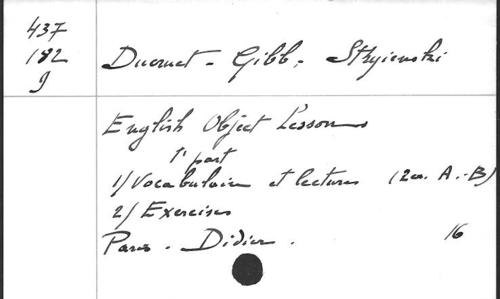 437
182
J
Ducruet - Gibb - Stryienski
English Object Lessons
1' part
1/ Vocabulaire et lectures (2ex. A.-B)
2/ Exercises
Paris - Didier. 16